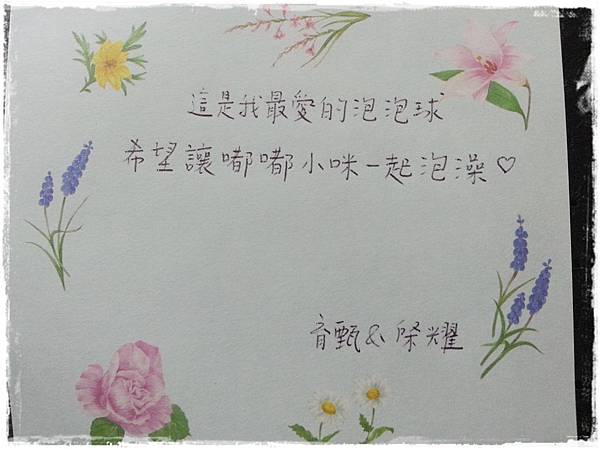 這是我最愛的泡泡球
希望讓嘟嘟小咪一起泡澡♡
育甄& 榮耀